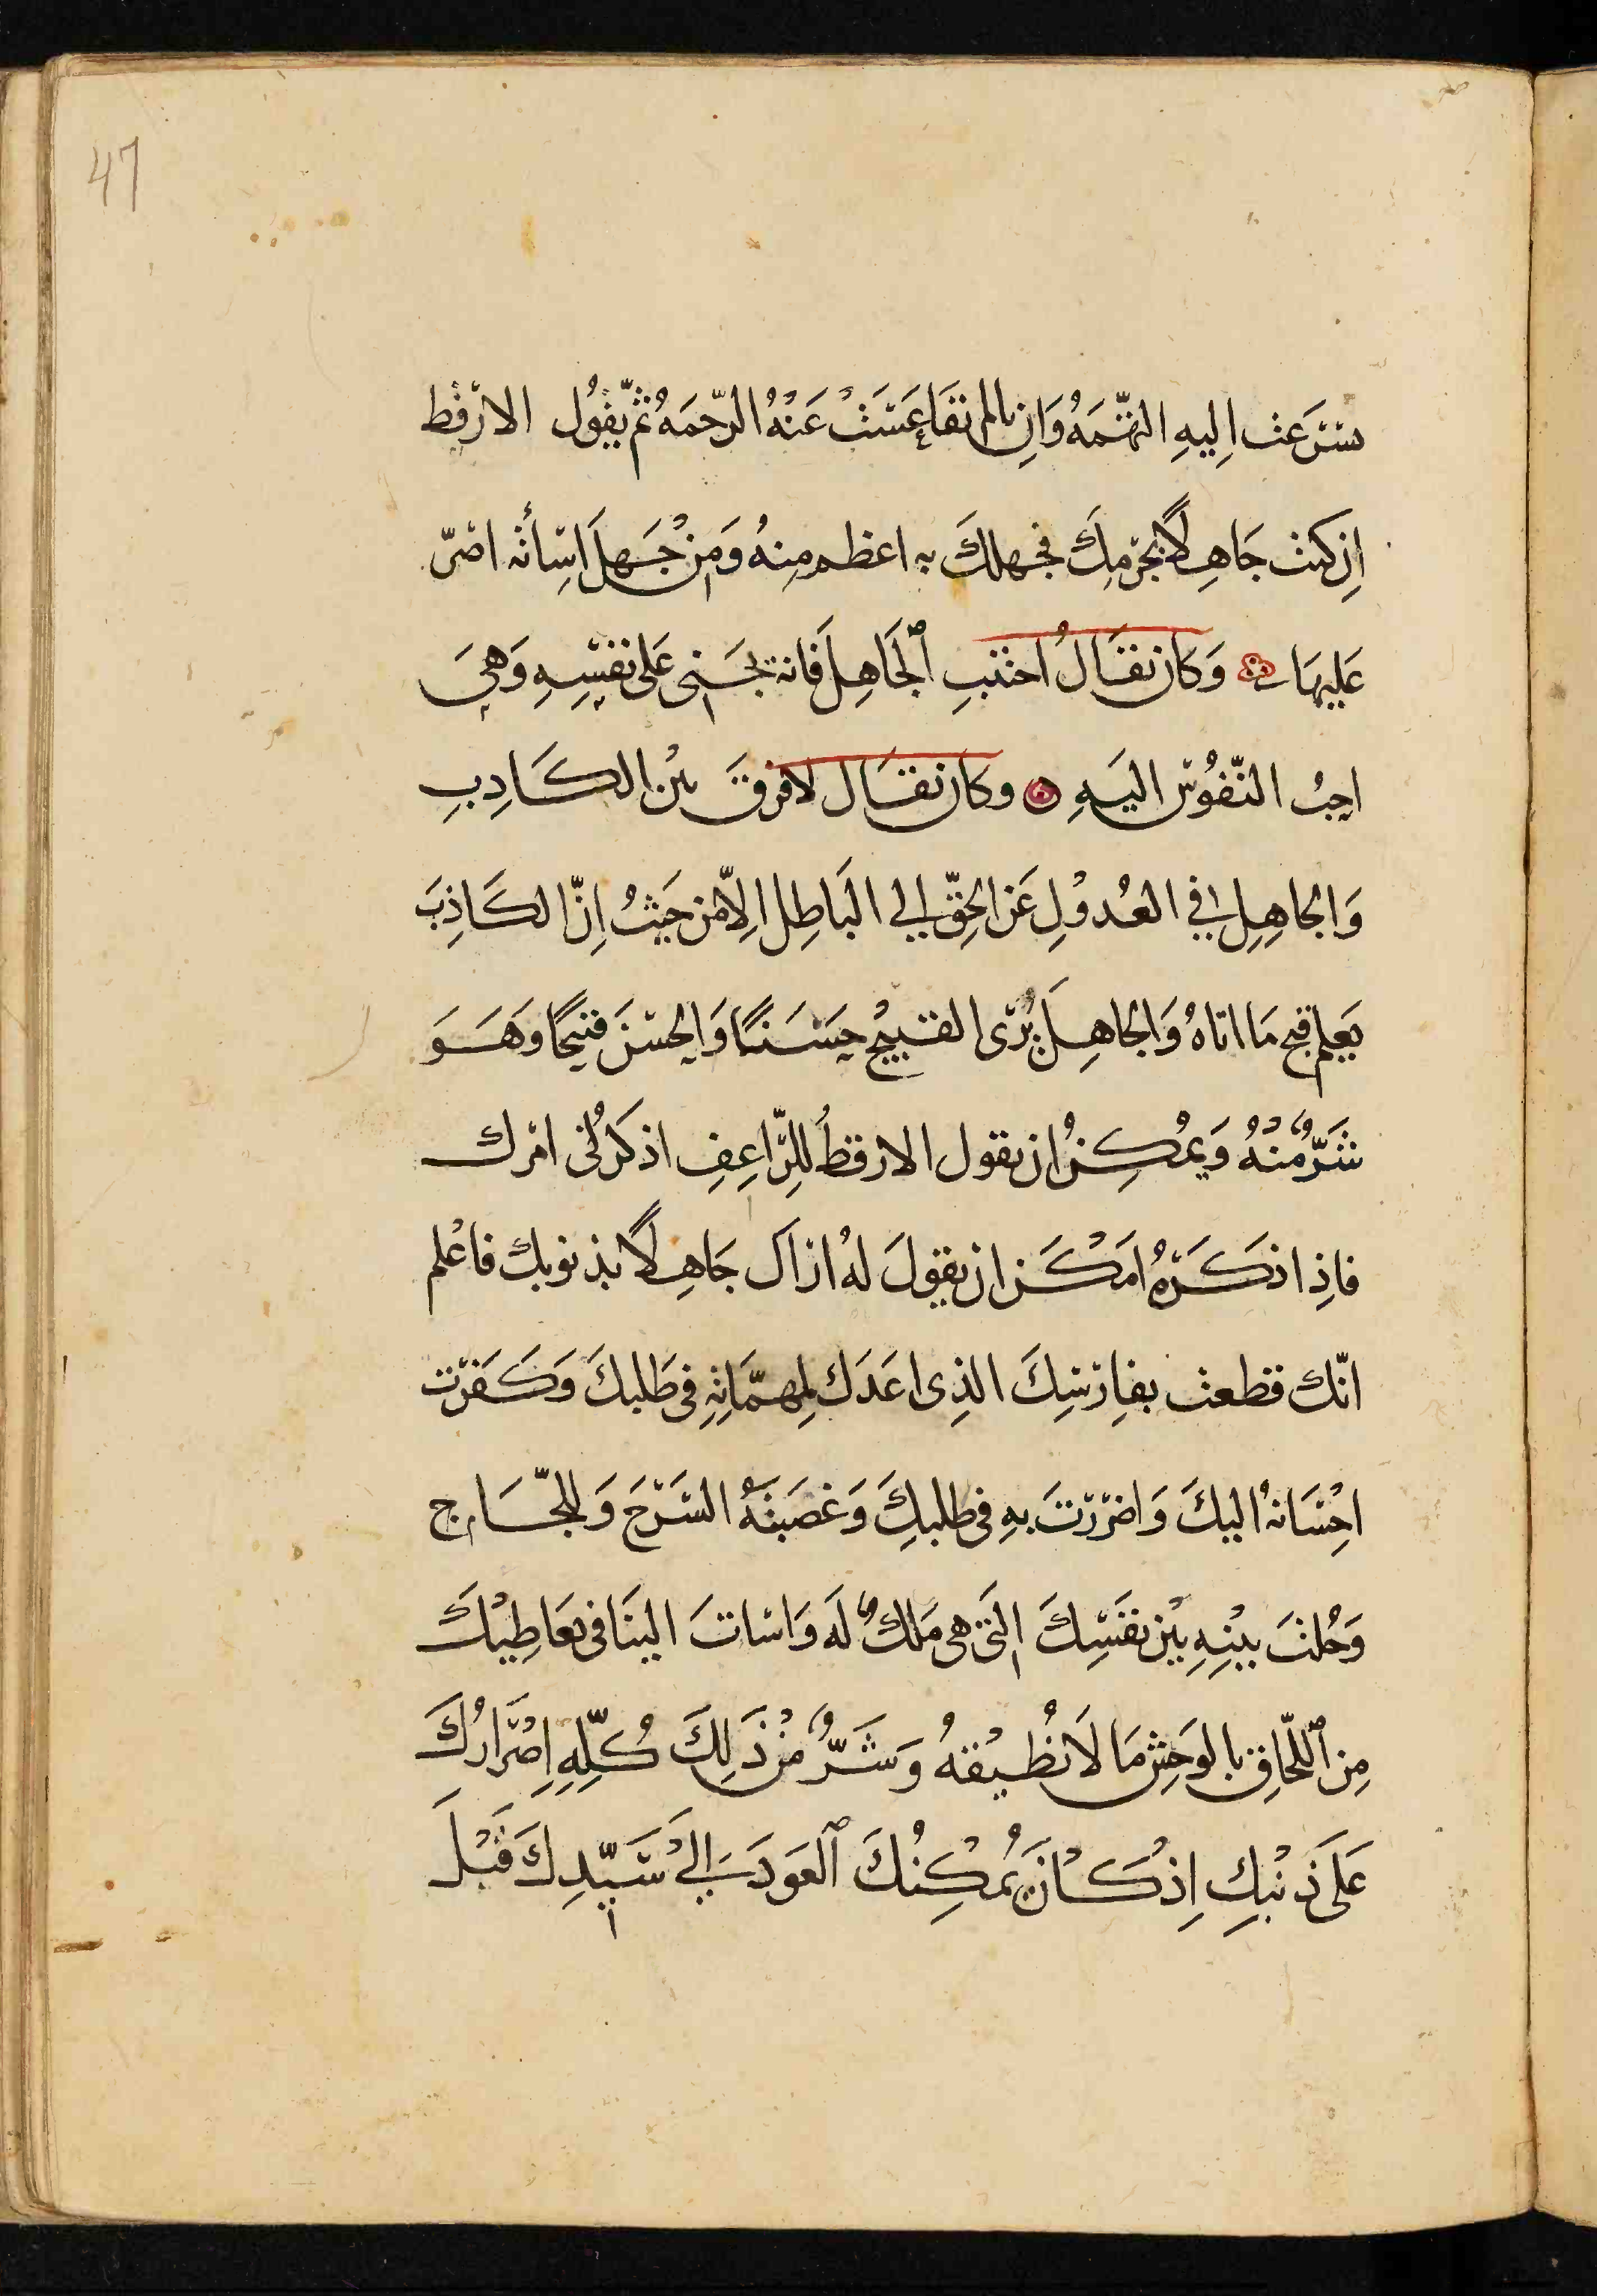 47
سرَعت اِليهِ التّهمَهُ وَاِن نالم تقَاعَسَتْ عَنْهُ الرّحمَهُ ثمّ يقُول الارْقط
اِن كنت جَاهِلًا بجُرْمِكَ فجهلكَ به اعظم مِنهُ وَمِنْ جَهلَ اسِائه اصَرّ
عَليهَا وَكان يقَالُ اجتنبِ ٱلجَاهِلَ فانه يجَنى عَلى نفسِهِ وَهىَ
احبُ النّفُوس اليَهِ وكان يقَال لافرقَ بيْن الكَاذِبِ
وَالجاهِلِ فى العُدوْلِ عَن الحِقّ الى البَاطِل اِلاّ من حَيثُ اِنّ الكَاذِبَ
يَعلم قبح مَا اتاهُ وَالجاهِلَ يُرَى القبيْح حسَنًا وَالحسْنَ قبيحًا وهَوَ
شَرٌّ مْنْهُ وَيمُكِنُ ان يقول الارقطُ لِلرّاعِفِ اذكرْلى امْرك
فاذِا ذكَرَهُ امَكَن ان يقولَ لهُ اراَك جَاهِلًا بذنوبك فاعْلم
انّك قطعت بفارْسِكَ الذِى اعَدَك لِمهمّاتِهِ فى طَلبكَ وَكَفرْت
احِسَانهُ اليكَ وَاضْررْتَ بهِ فى طلبكِ وَغصَبتهُ السَرْجَ وَاللجّام
وَحُلتَ بينِهِ بيْن نفسِكَ التى هى مَلكٌ لَه وَاسْاتَ الينَا فى تعَاطِيْكَ
مِن ٱللّحاقِ بالوَحِش مَا لَا تطُيْقهُ وَشَرٌّ مْنْ ذَلِكَ كُلّهِ اِصْرَارُكَ
عَلَى ذنْبكِ اِذْ كَانَ يُمْكِنُكَ ٱلعَودَ اِلىَ سَيّدِكَ قَبْلَ